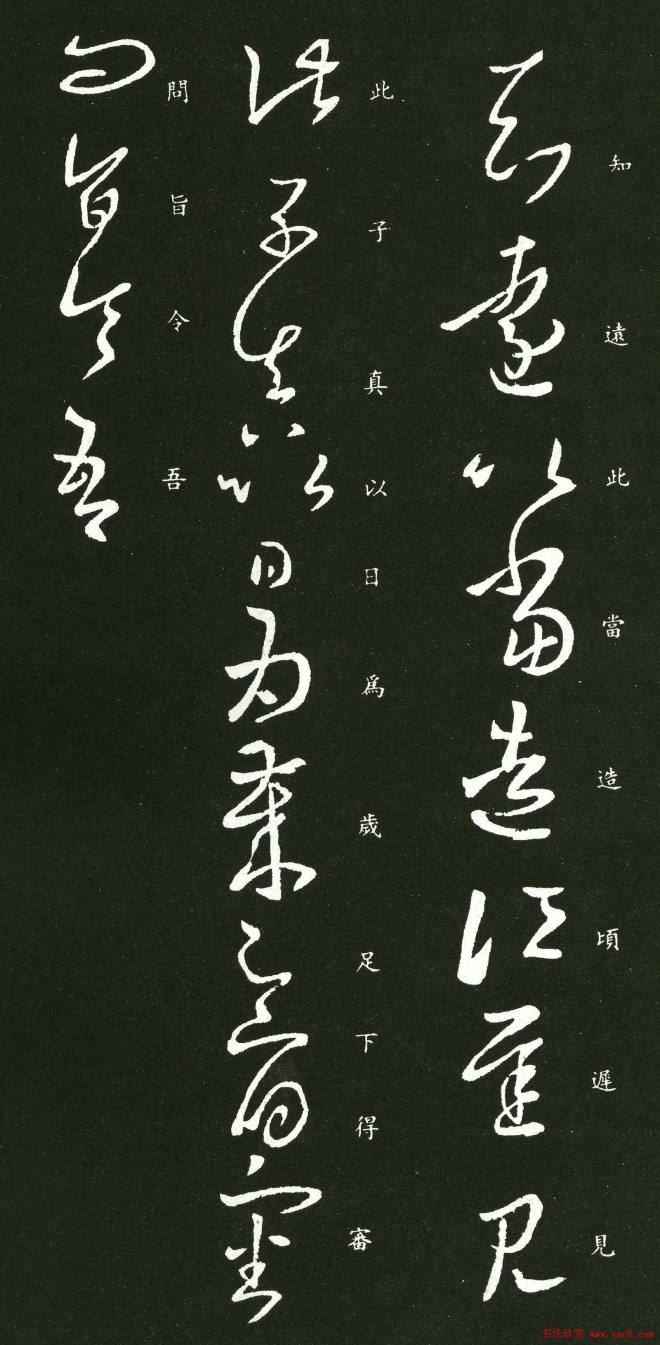 知遠此當造頃遲見
此子真以日爲歲足下得審
問旨令吾
书法欣赏 www.yac8.com